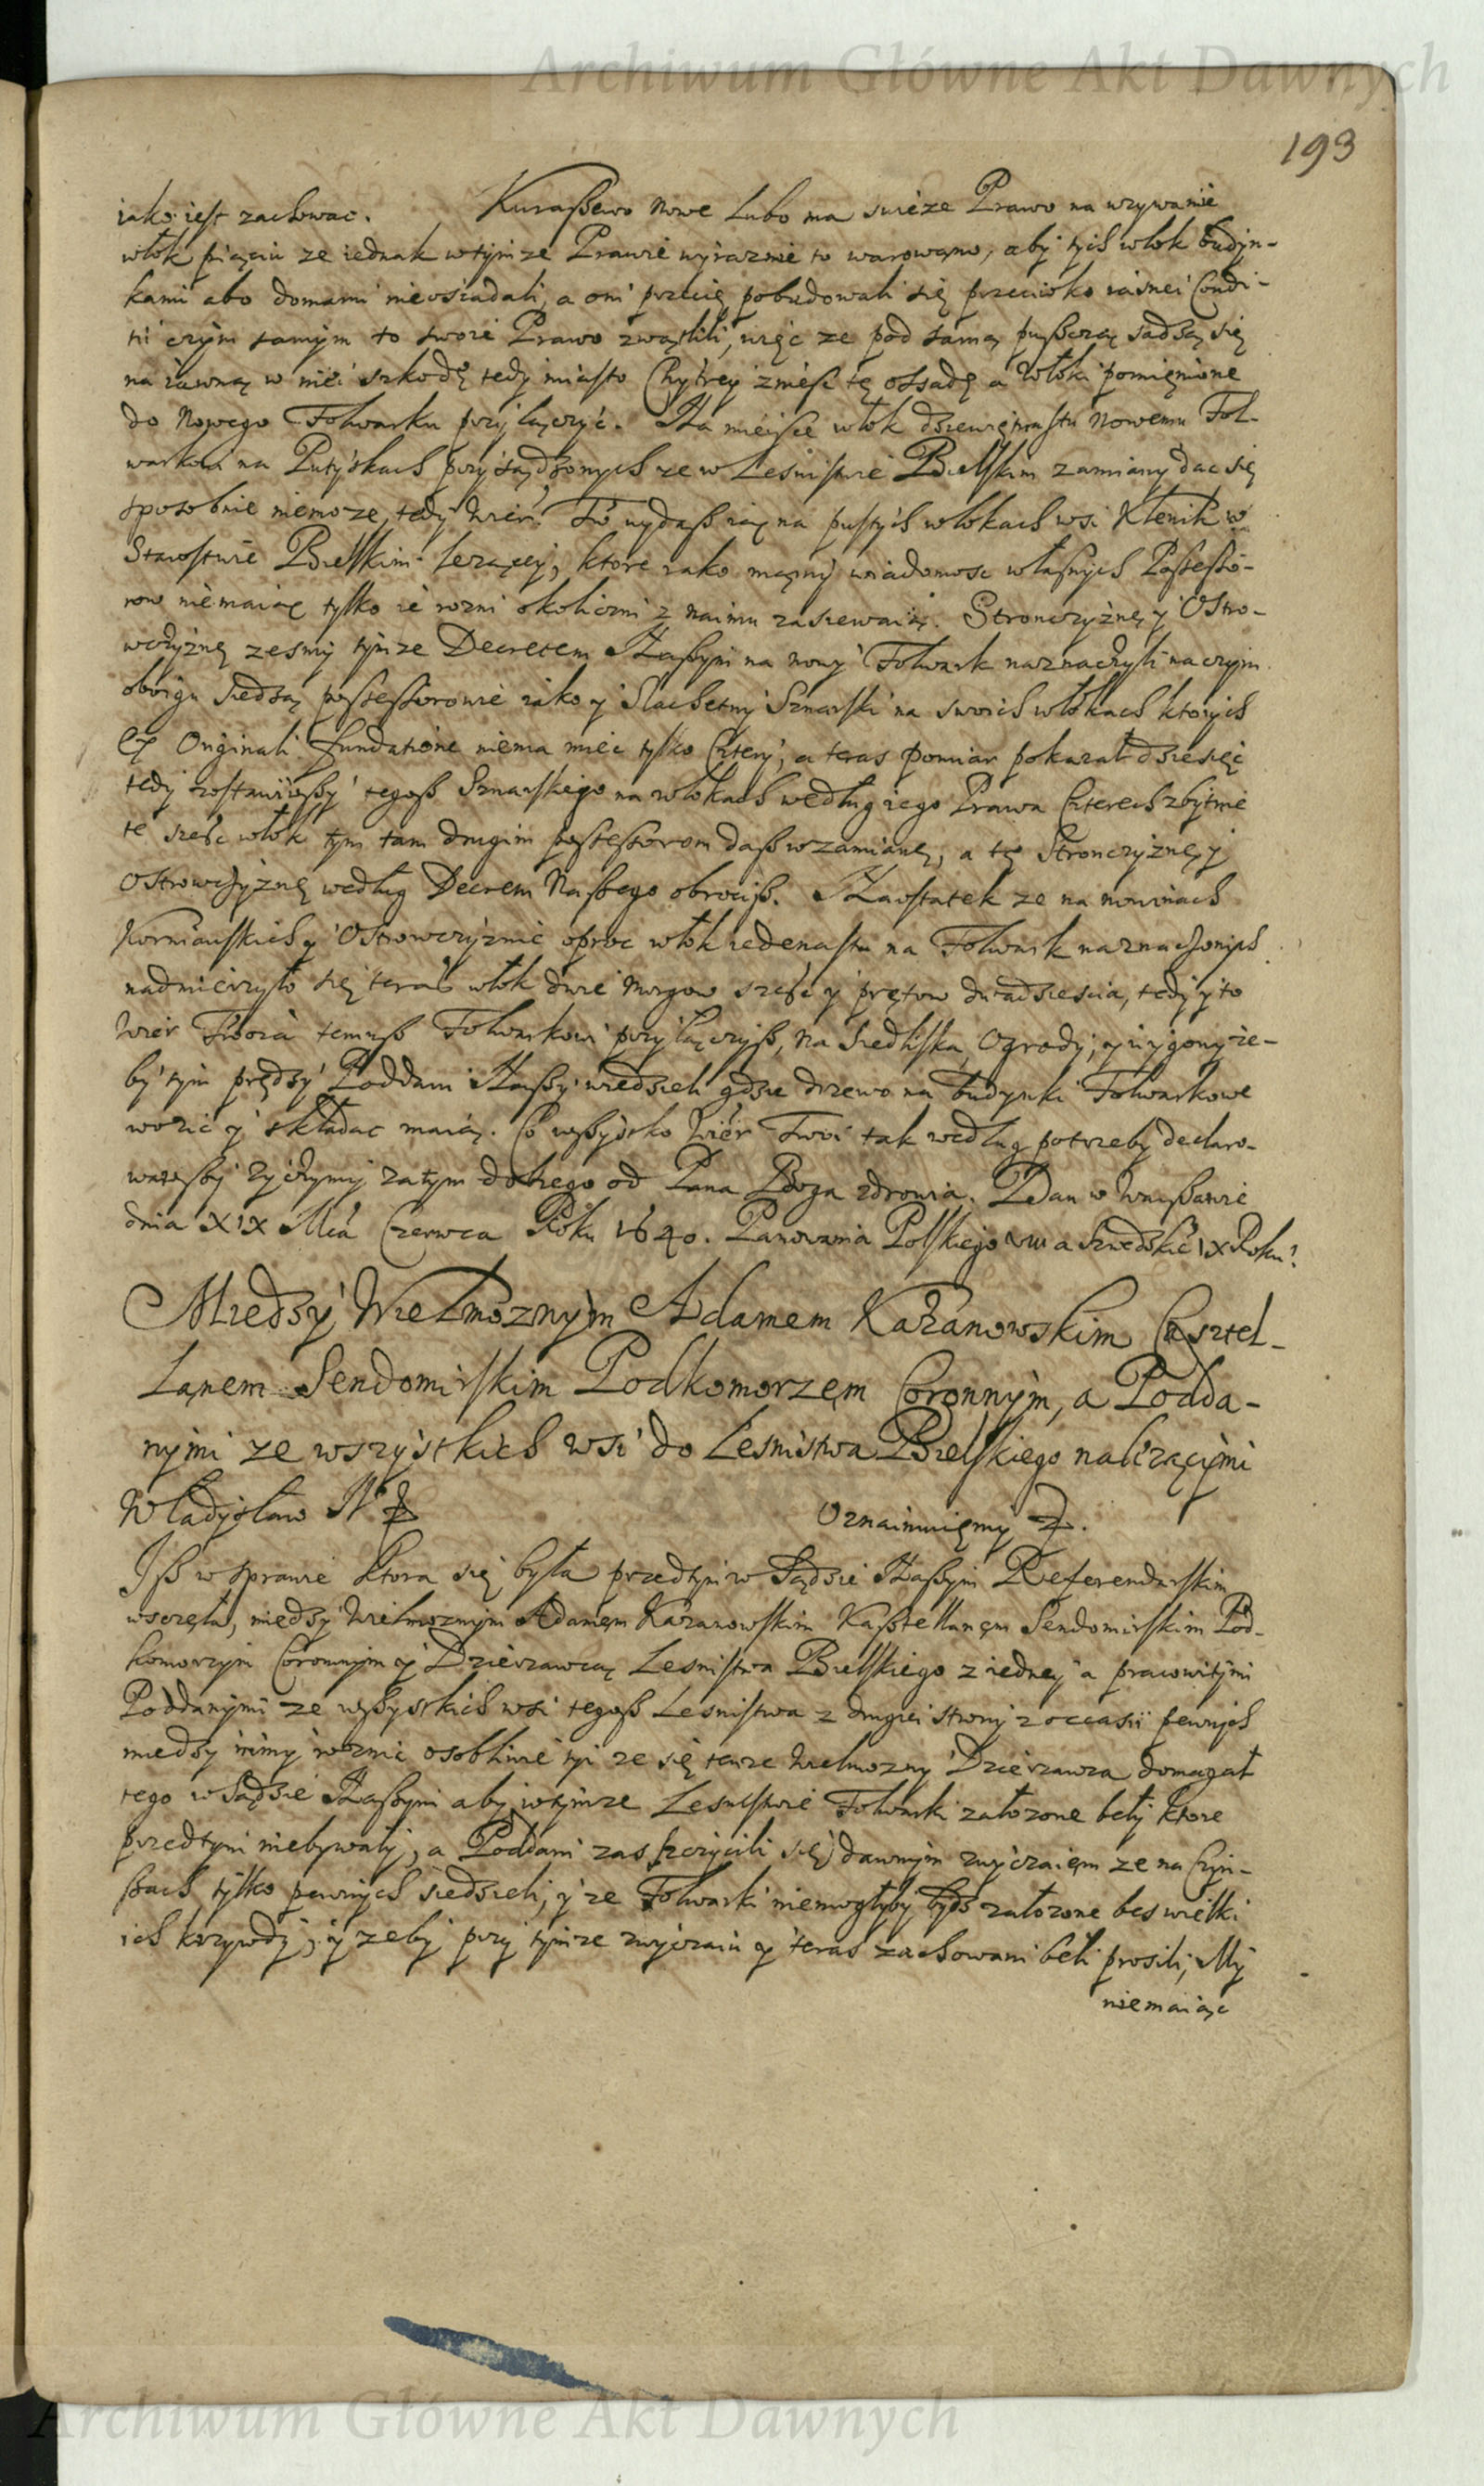 Archiwum Główne Akt Dawnych
193
iako iest zachowac. Kuraßewo Nowe Lubo ma swieże Prawo na uzywanié
włok pięciu ze iednak w tymze Prawie wyraznie to warowano, aby tych włok budyn-
kami abo domami nieosiadali, a oni przecię pobudowali się przeciwko iasnei Condi-
tii czym samym to swoie Prawo zwątlili, więc ze pod samą pußczą sadzą się
na iawną w niei szkodę tedy miasto Chytrey zniesc tę ossadę a Włoki pomienione
do Nowego Folwarku przyłączyć. Na mieisce włok dziewiętnastu Nowemu Fol-
warkowi na Putyskach przysądzonych ze w Lesnistwie Bielskim zamiany dac się
sposobnie niemoze, tedy Wier: Tw: wydaß ią na pustych włokach wsi Klenik w
Starostwie Bielskim lezącey, ktore iako mamy wiadomosc własnych Possesso-
row niemaią tylko ie rozni okoliczni z naimu zasiewaią. Stronczyznę y Ostro-
wczyznę zesmy tymze Decretem Naßym na nowy Folwark naznaczyli na czym
oboigu siedzą possessorowie iako y Slachetny Sznarski na swoich włokach ktorych
Ex Originali fundatione niema miec tylko Cztery, a teras pomiar pokazał dziesięć
tedy zostawiwßy tegoß Sznarskiego na włokach według iego Prawa Czterech zbytnie
te sześc włok tym tam drugim possessorom daß w zamianę, a tę Stronczyznę y
Ostrowczyznę według Decretu Naßego obrociß. Naostatek ze na nowinach
Korniańskich y Ostrowczyznie oproc włok iedenastu na Folwark naznaczonych
nadmierzyło się teras włok dwie Morgow szesc y prętow dwadziescia, tedy y to
Wier Twoia temuß Folwarkowi przyłączyß, na Siedliska, Ogrody, y wygony ze-
by tym prędzy Poddani Naßy wiedzieli gdzie drzewo na budynki Folwarkowe
wozic y składac maią. Co wßystko Wier Twoi tak według potrzeby declaro-
wawßy zyczymy zatym dobrego od Pana Boga zdrowia. Dan w Warßawie
dnia XIX Mca Czerwca Roku 1640. Panowania Polskiego VIII a Szwedzkie IX Roku.
Miedzy Wielmoznym Adamem Kazanowskim Casztel-
lanem Sendomirskim Podkomorzem Coronnym, a Podda-
nymi ze wszystkich wsi do Lesnistwa Bielskiego nalezącymi
Władysław IV Oznaimuiemy
Iß w sprawie ktora się była przedtym w Sądzie Naßym Referendarskim
wszczęła, miedzy Wielmoznym Adamem Kazanowskim Kaßtellanem Sendomirskim Pod-
komorzym Coronnym y Dzierzawcą Lesnistwa Bielskiego z iedney a pracowitymi
Poddanymi ze wßystkich wsi tegoß Lesnistwa z drugiei strony z occasii pewnych
miedzy nimy roznic osobliwie tyi ze się tenze Wielmozny Dzierzawca domagał
tego w Sądzie Naßym aby w tymze Lesnistwie Folwarki załozone beły ktore
przedtym niebywały, a Poddani zas szczycili się dawnym zwyczaiem ze na Czyn-
ßach tylko pewnych siedzieli, y ze Folwarki niemogłyby bydz załozone bes wielki
ich krzywdy, y zeby przy tymze zwyczaiu y teras zachowani beli prosili, My
niemaiąc
Archiwum Główne Akt Dawnych